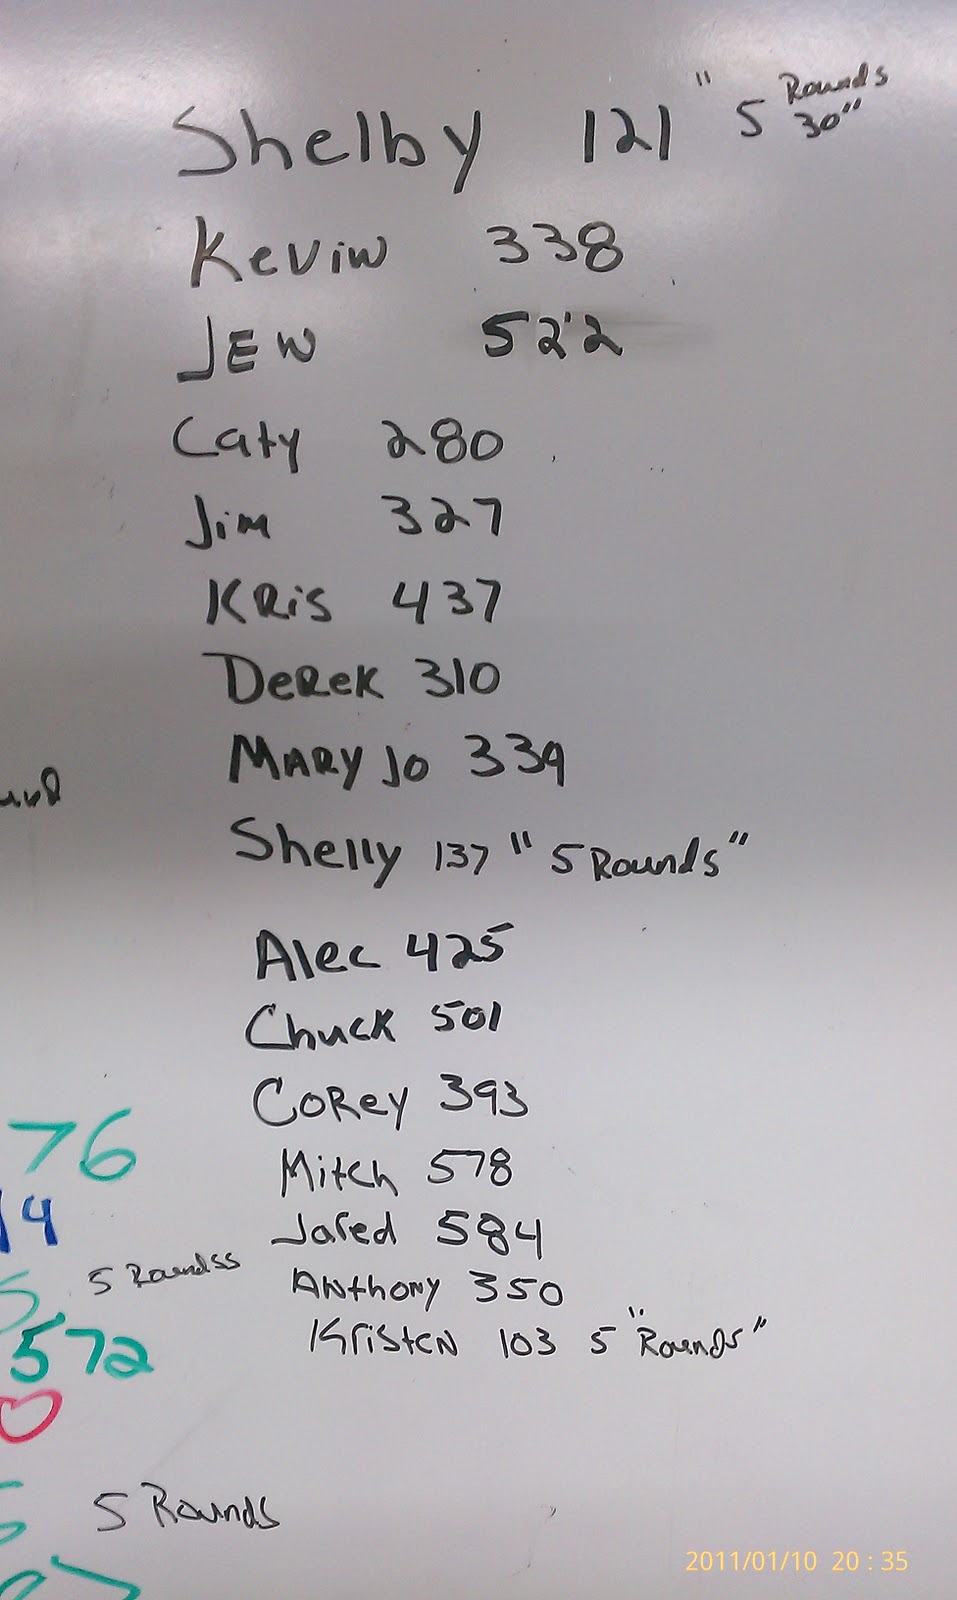 Shelby 121 " 5 Rounds 30"
Kevin 338
JEN 522
Caty 280
Jim 327
KRis 437
DeReK 310
MARY JO 339
Shelly 137 " 5 Rounds "
Alec 425
Chuck 501
CoRey 393
Mitch 578
Jared 584
ANthony 350
KristeN 103 5 "Rounds"
76
14
5 Roundss
572
5 Rounds
2011/01/10 20:35